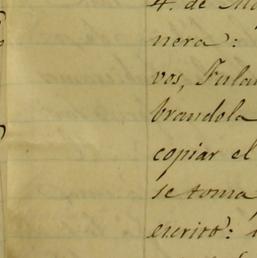 4. de
nera:
vos, Fulan
brandola
copiar el
se toma
escrito: